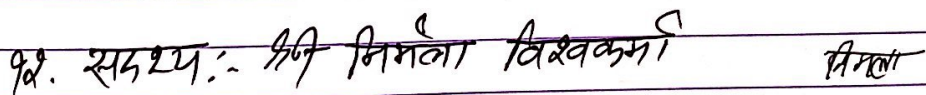 १२. सदश्य:- श्री निर्मला विश्वकर्मा निर्मला